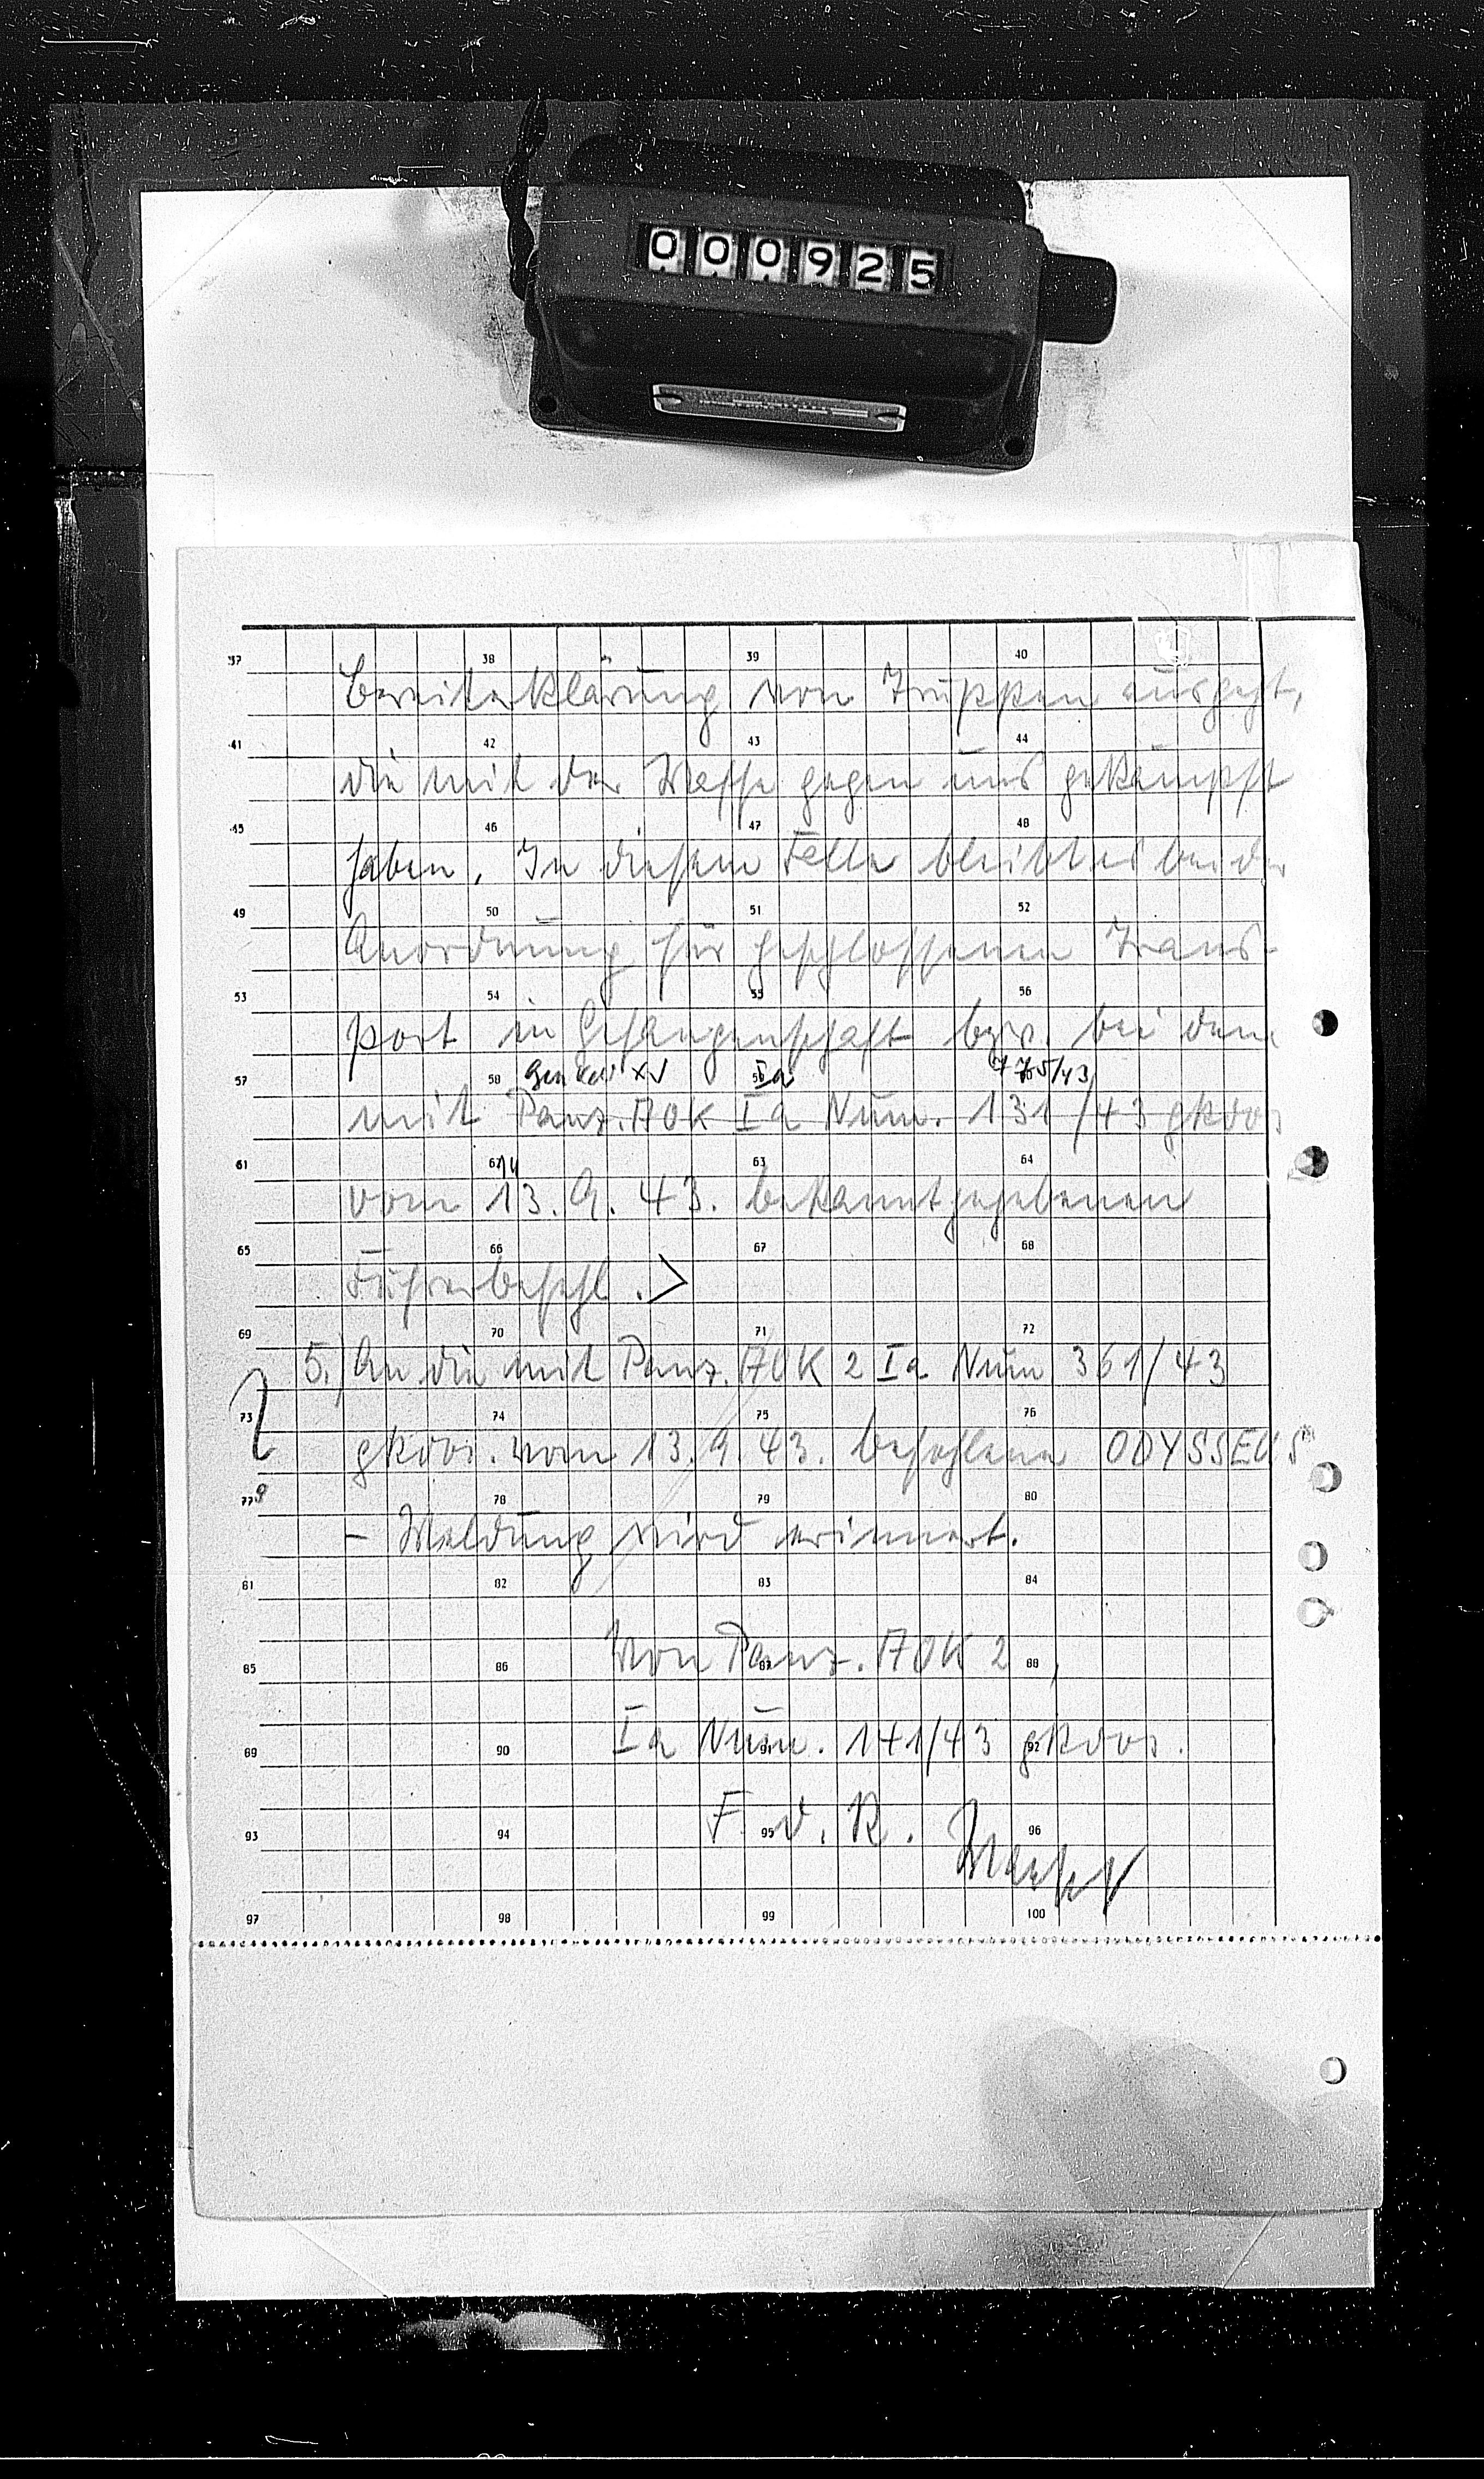 000925
37 38 39 40
Bereiterklärung von Truppen ausgeht,
41 42 43 44
die mit der Waffe gegen uns gekämpft
45 46 47 48
haben. In diesem Falle bleibt es bei der
49 50 51 52
Anordnung für geschlossenen Trans-
53 54 55 56
port in Gefangenschaft bzw. bei dem
57 58 Gen Kdo XV Ia 775/43
mit Panz. AOK Ia Num. 131/43 gkdos
61 62 14 63 64
vom 13. 9. 43. bekanntgegebenen
65 66 67 68
Führerbefehl. >
69 70 71 72
5.) An die mit Panz. AOK 2 Ia Num 361/43
73 74 75 76
gkdos. vom 13. 9. 43. befohlene ODYSSEUS
77 78 79 80
- Meldung wird erinnert.
81 82 83 84
Von Panz. AOK 2
85 86 87 88
Ia Num. 141/43 gkdos.
89 90 91 92
F. d. R.
93 94 95 96
97 98 99 100